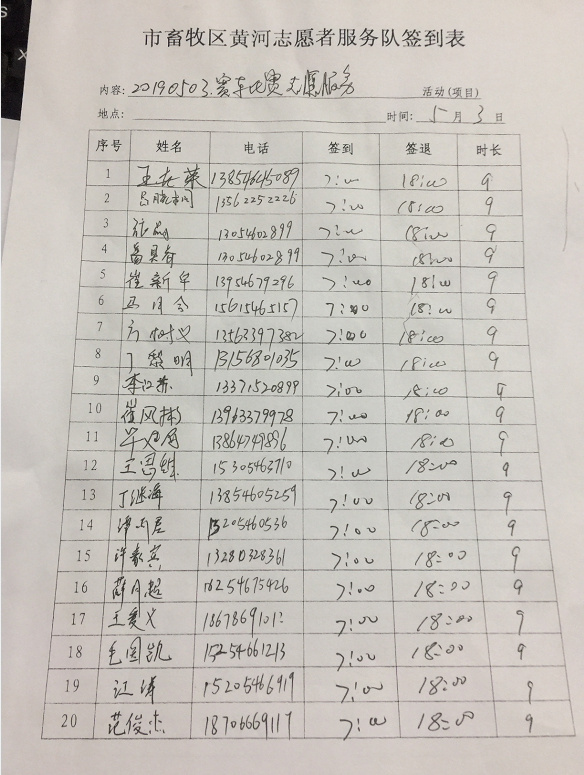 市畜牧区黄河志愿者服务队签到表
内容: 20190503.赛车比赛志愿服务 活动(项目)
地点: 时间: 5 月 3 日
序号 姓名 电话 签到 签退 时长
1 13854645089 7:00 18:00 9
2 13562252226 7:00 18:00 9
3 13054602899 7:00 18:00 9
4 13054602899 7:00 18:00 9
5 崔新军 13954679296 7:00 18:00 9
6 15615465157 7:00 18:00 9
7 13563397382 7:00 18:00 9
8 丁黎明 13156801035 7:00 18:00 9
9 李江苏 13371520899 7:00 18:00 9
10 崔风彬 13963379978 7:00 18:00 9
11 13864749896 7:00 18:00 9
12 王恩胜 15305463710 7:00 18:00 9
13 丁继海 13854605259 7:00 18:00 9
14 13205460536 7:00 18:00 9
15 13280328361 7:00 18:00 9
16 薛月超 18254675426 7:00 18:00 9
17 王爱义 7:00 18:00 9
18 毛国凯 15254661213 7:00 18:00 9
19 江洋 15205466919 7:00 18:00 9
20 范俊杰 18706669117 7:00 18:00 9